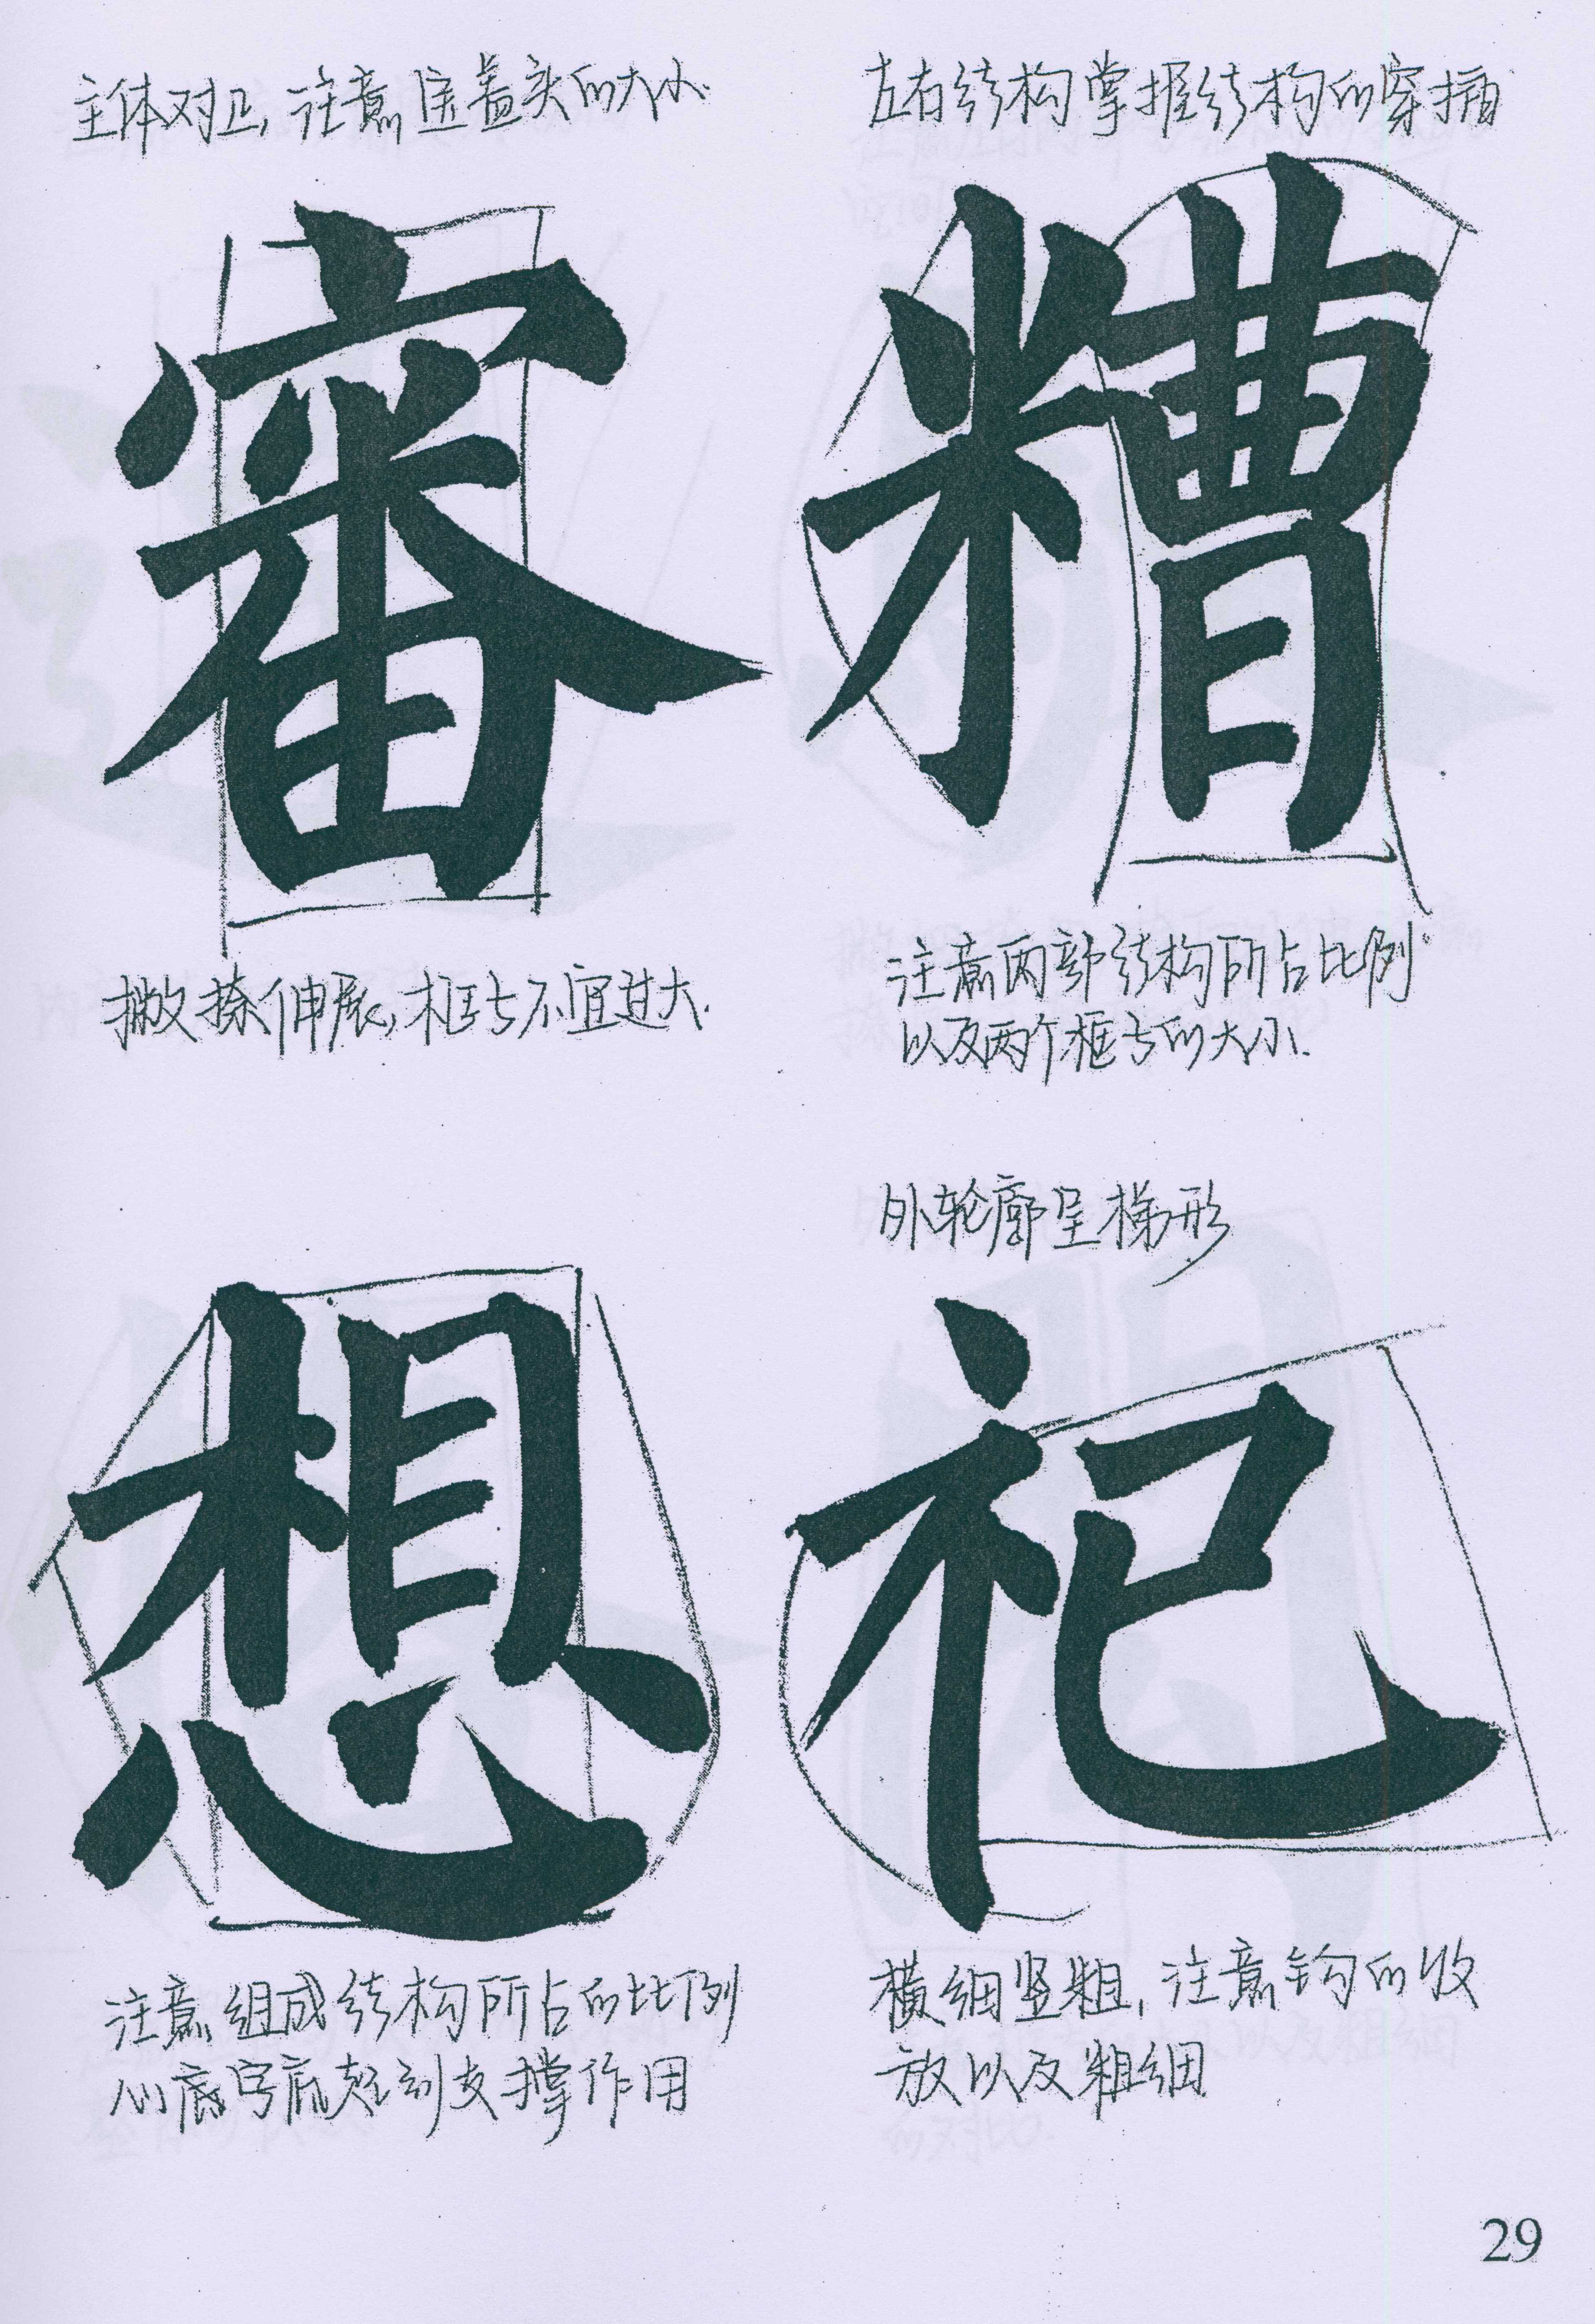 主体对正,注意宝盖头的大小.
審
撇捺伸展,框架不宜过大.
左右结构掌握结构的穿插
糟
注意两部结构所占比例。
以及两个框架的大小.
想
注意组成结构所占的比例
心底字底起到支撑作用
外轮廓呈梯形
祀
横细竖粗,注意钩的收
放以及粗细
29